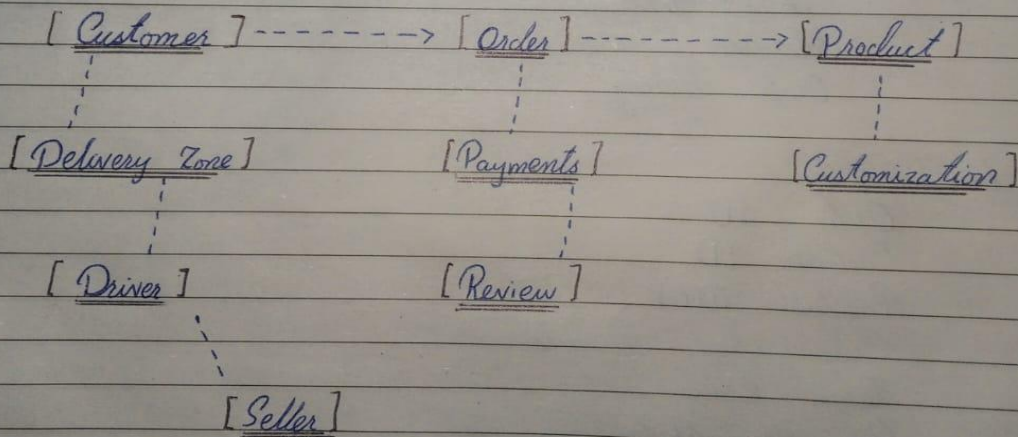 [ Customer ] -------> [ Order ] --------> [ Product ]
[ Delivery Zone ] [ Payments ] [ Customization ]
[ Driver ] [ Review ]
[ Seller ]